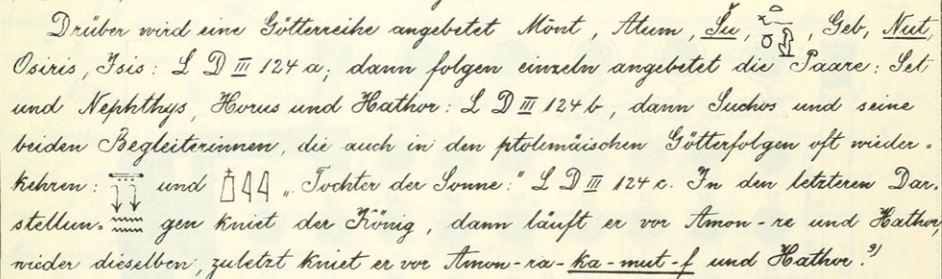 Drüber wird eine Götterreihe angebetet Mónt, Atum, Šu, , Geb, Nut,
Osiris, Isis: L D III 124 a; dann folgen einzeln angebetet die Paare: Set
und Nephthys, Horus und Hathor: L D III 124 b, dann Suchos und seine
beiden Begleiterinnen, die auch in den ptolemäischen Götterfolgen oft wieder-
kehren: und „Tochter der Sonne:" L D III 124 c. In den letzteren Dar-
stellun- gen kniet der König, dann läuft er vor Amon-re und Hathor,
wieder dieselben, zuletzt kniet er vor Amon-ra-ka-mut-f und Hathor.²⁾